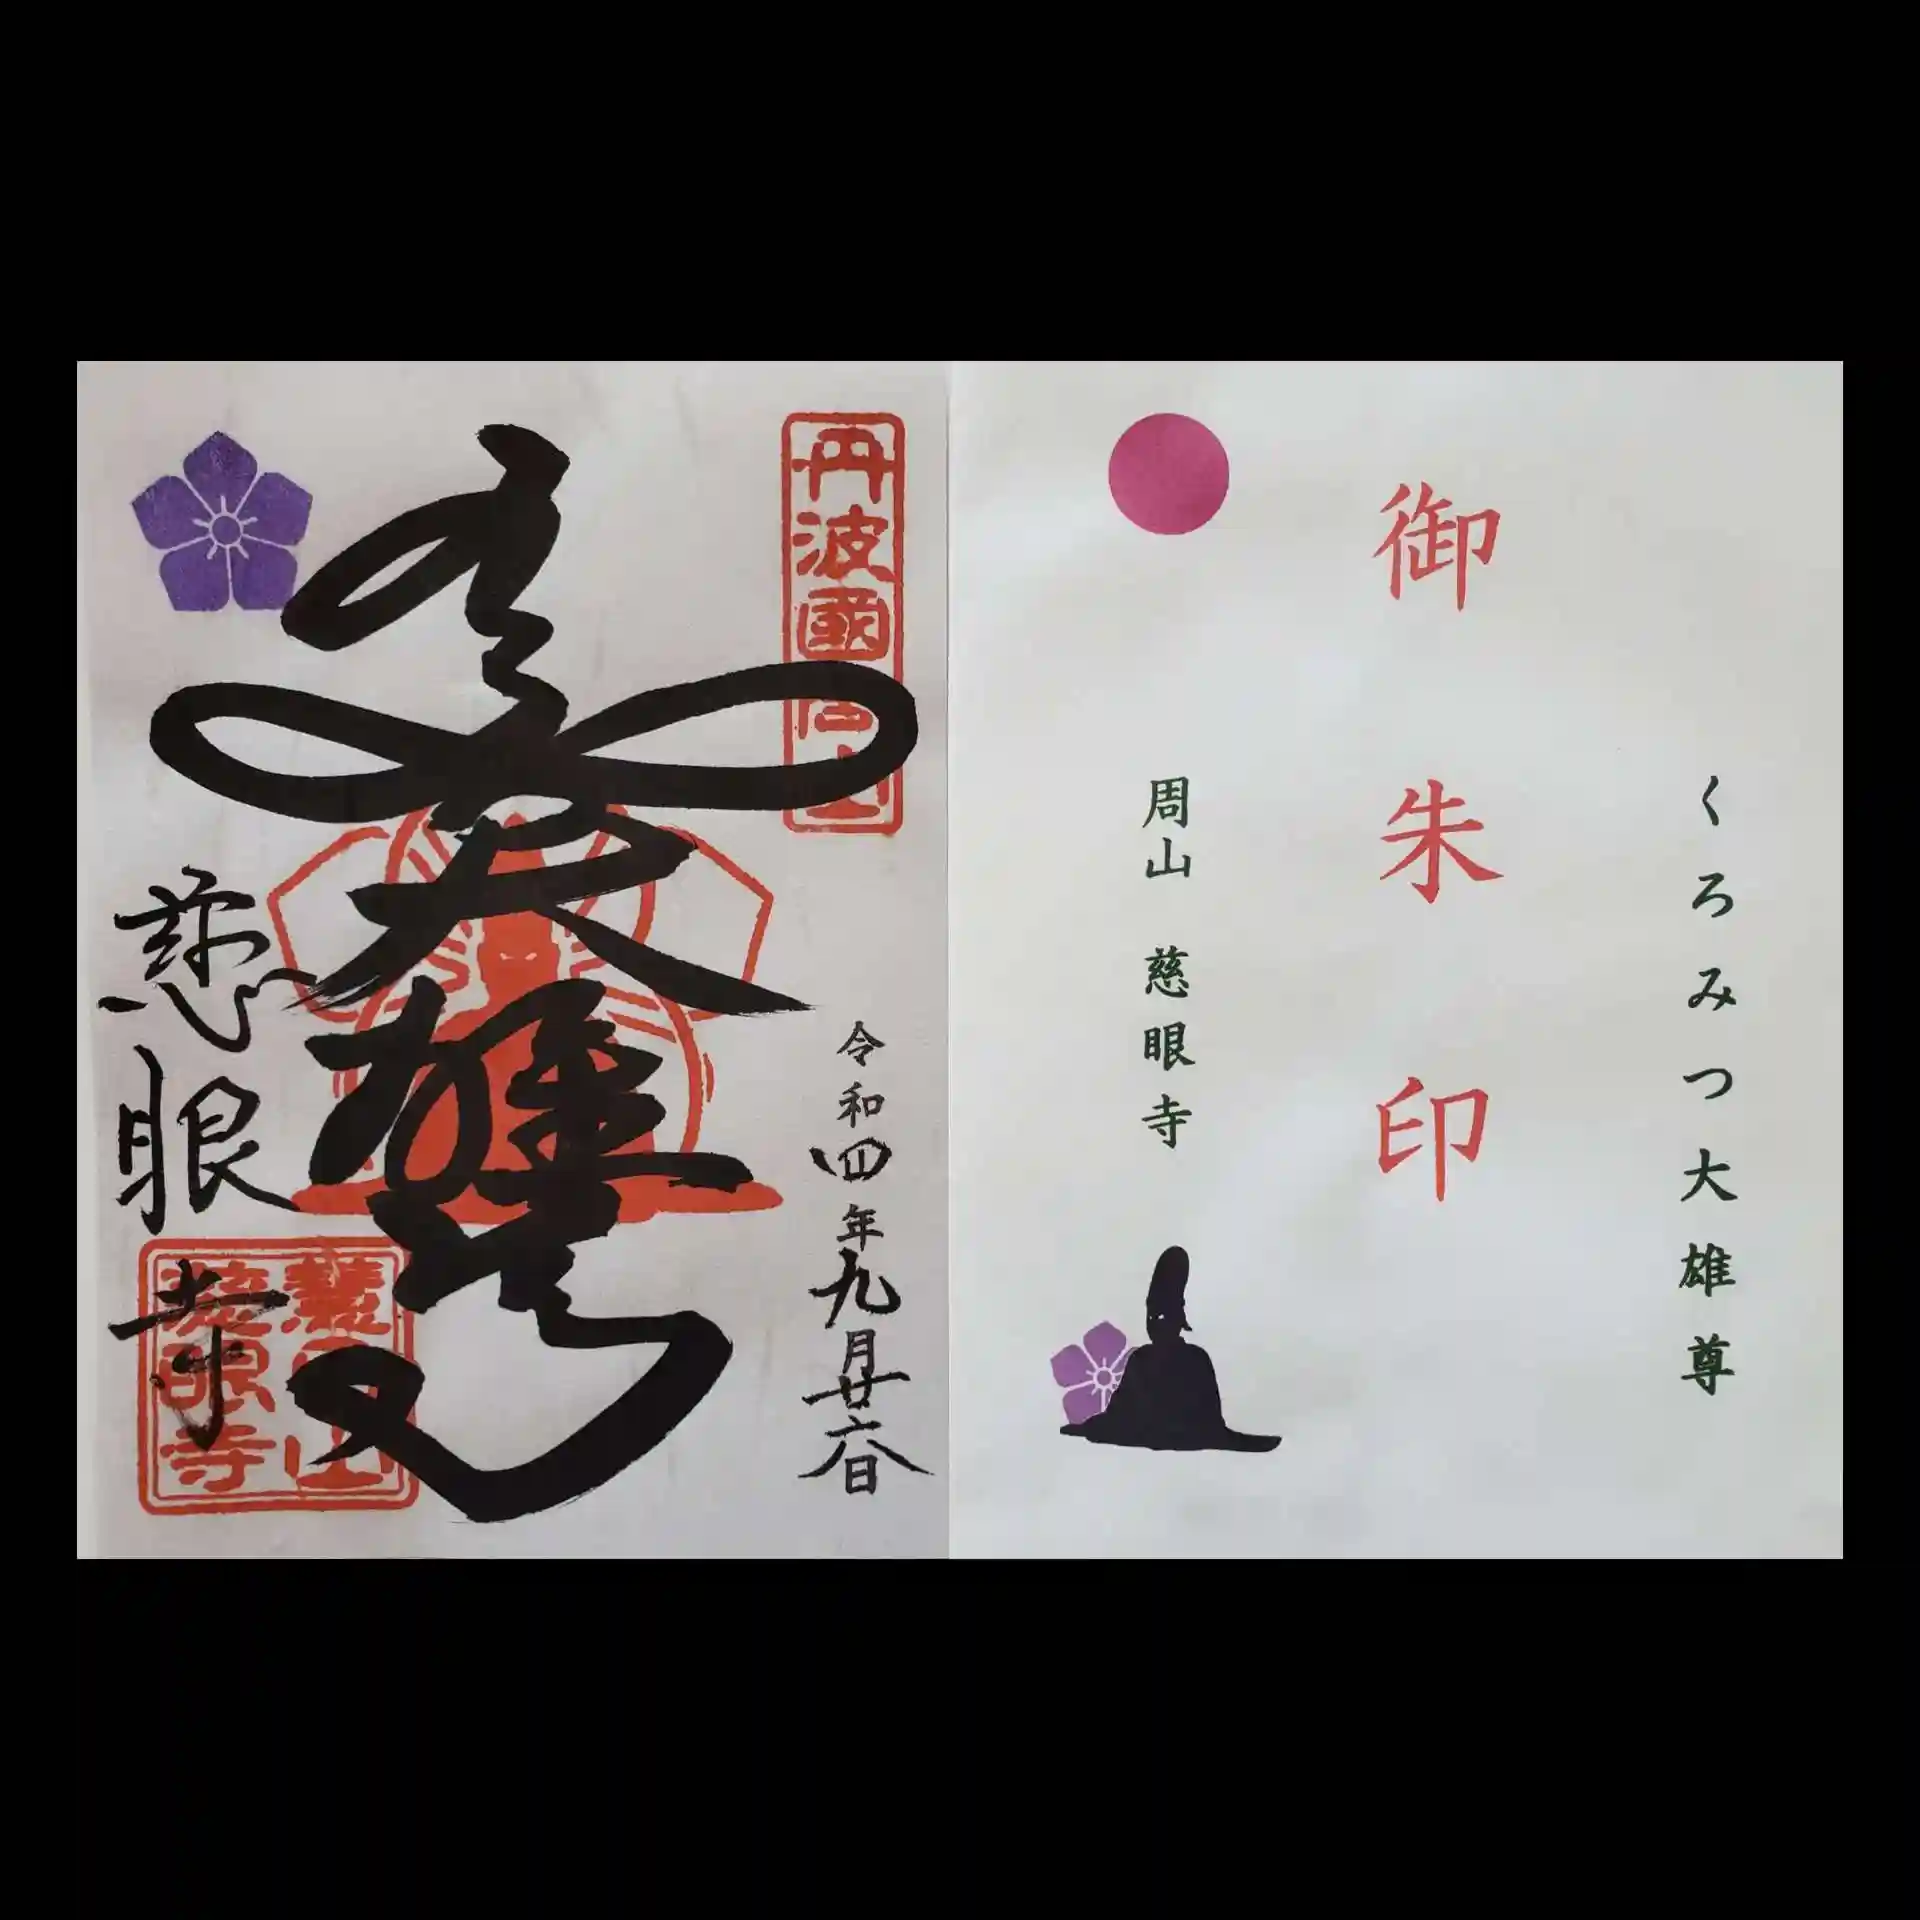 くろみつ大雄尊
御朱印
周山 慈眼寺
丹波國周山
令和四年九月廿六日
大雄尊
慈眼寺
慈眼寺